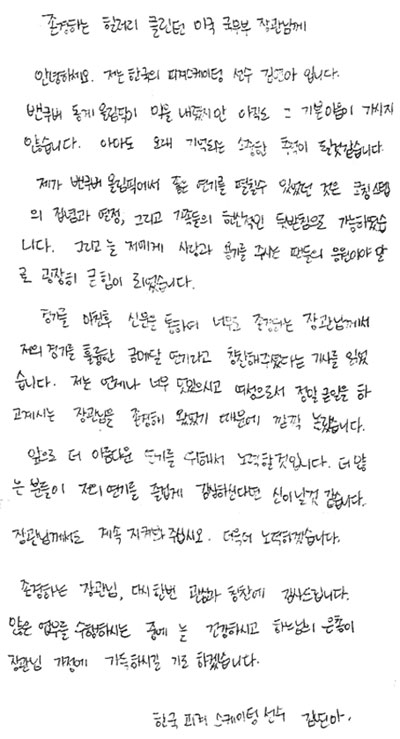 존경하는 힐러리 클린턴 미국 국무부 장관님께
안녕하세요. 저는 한국의 피겨스케이팅 선수 김연아 입니다.
밴쿠버 동계 올림픽이 막을 내렸지만 아직도 그 기분이 가시지
않습니다. 아마도 오래 기억되는 소중한 추억이 될것같습니다.
제가 밴쿠버 올림픽에서 좋은 연기를 펼칠수 있었던 것은 코칭스텝
의 집념과 열정, 그리고 가족들의 헌신적인 뒷받침으로 가능하였습
니다. 그리고 늘 저에게 사랑과 용기를 주시는 팬들의 응원이야 말
로 굉장히 큰 힘이 되었습니다.
경기를 마친후 신문을 통하여 너무도 존경하는 장관님께서
저의 경기를 훌륭한 금메달 연기라고 칭찬해주셨다는 기사를 읽었
습니다. 저는 언제나 너무 멋있으시고 여성으로서 정말 큰일을 하
고계시는 장관님을 존경해 왔었기 때문에 깜짝 놀랐습니다.
앞으로 더 아름다운 연기를 위해서 노력할것입니다. 더 많
은 분들이 저의 연기를 즐겁게 감상하신다면 신이날것 같습니다.
장관님께서도 계속 지켜봐 주십시오. 더욱더 노력하겠습니다.
존경하는 장관님, 다시한번 관심과 칭찬에 감사드립니다.
많은 업무를 수행하시는 중에 늘 건강하시고 하느님의 은총이
장관님 가정에 가득하시길 기도 하겠습니다.
한국 피겨 스케이팅 선수 김연아.